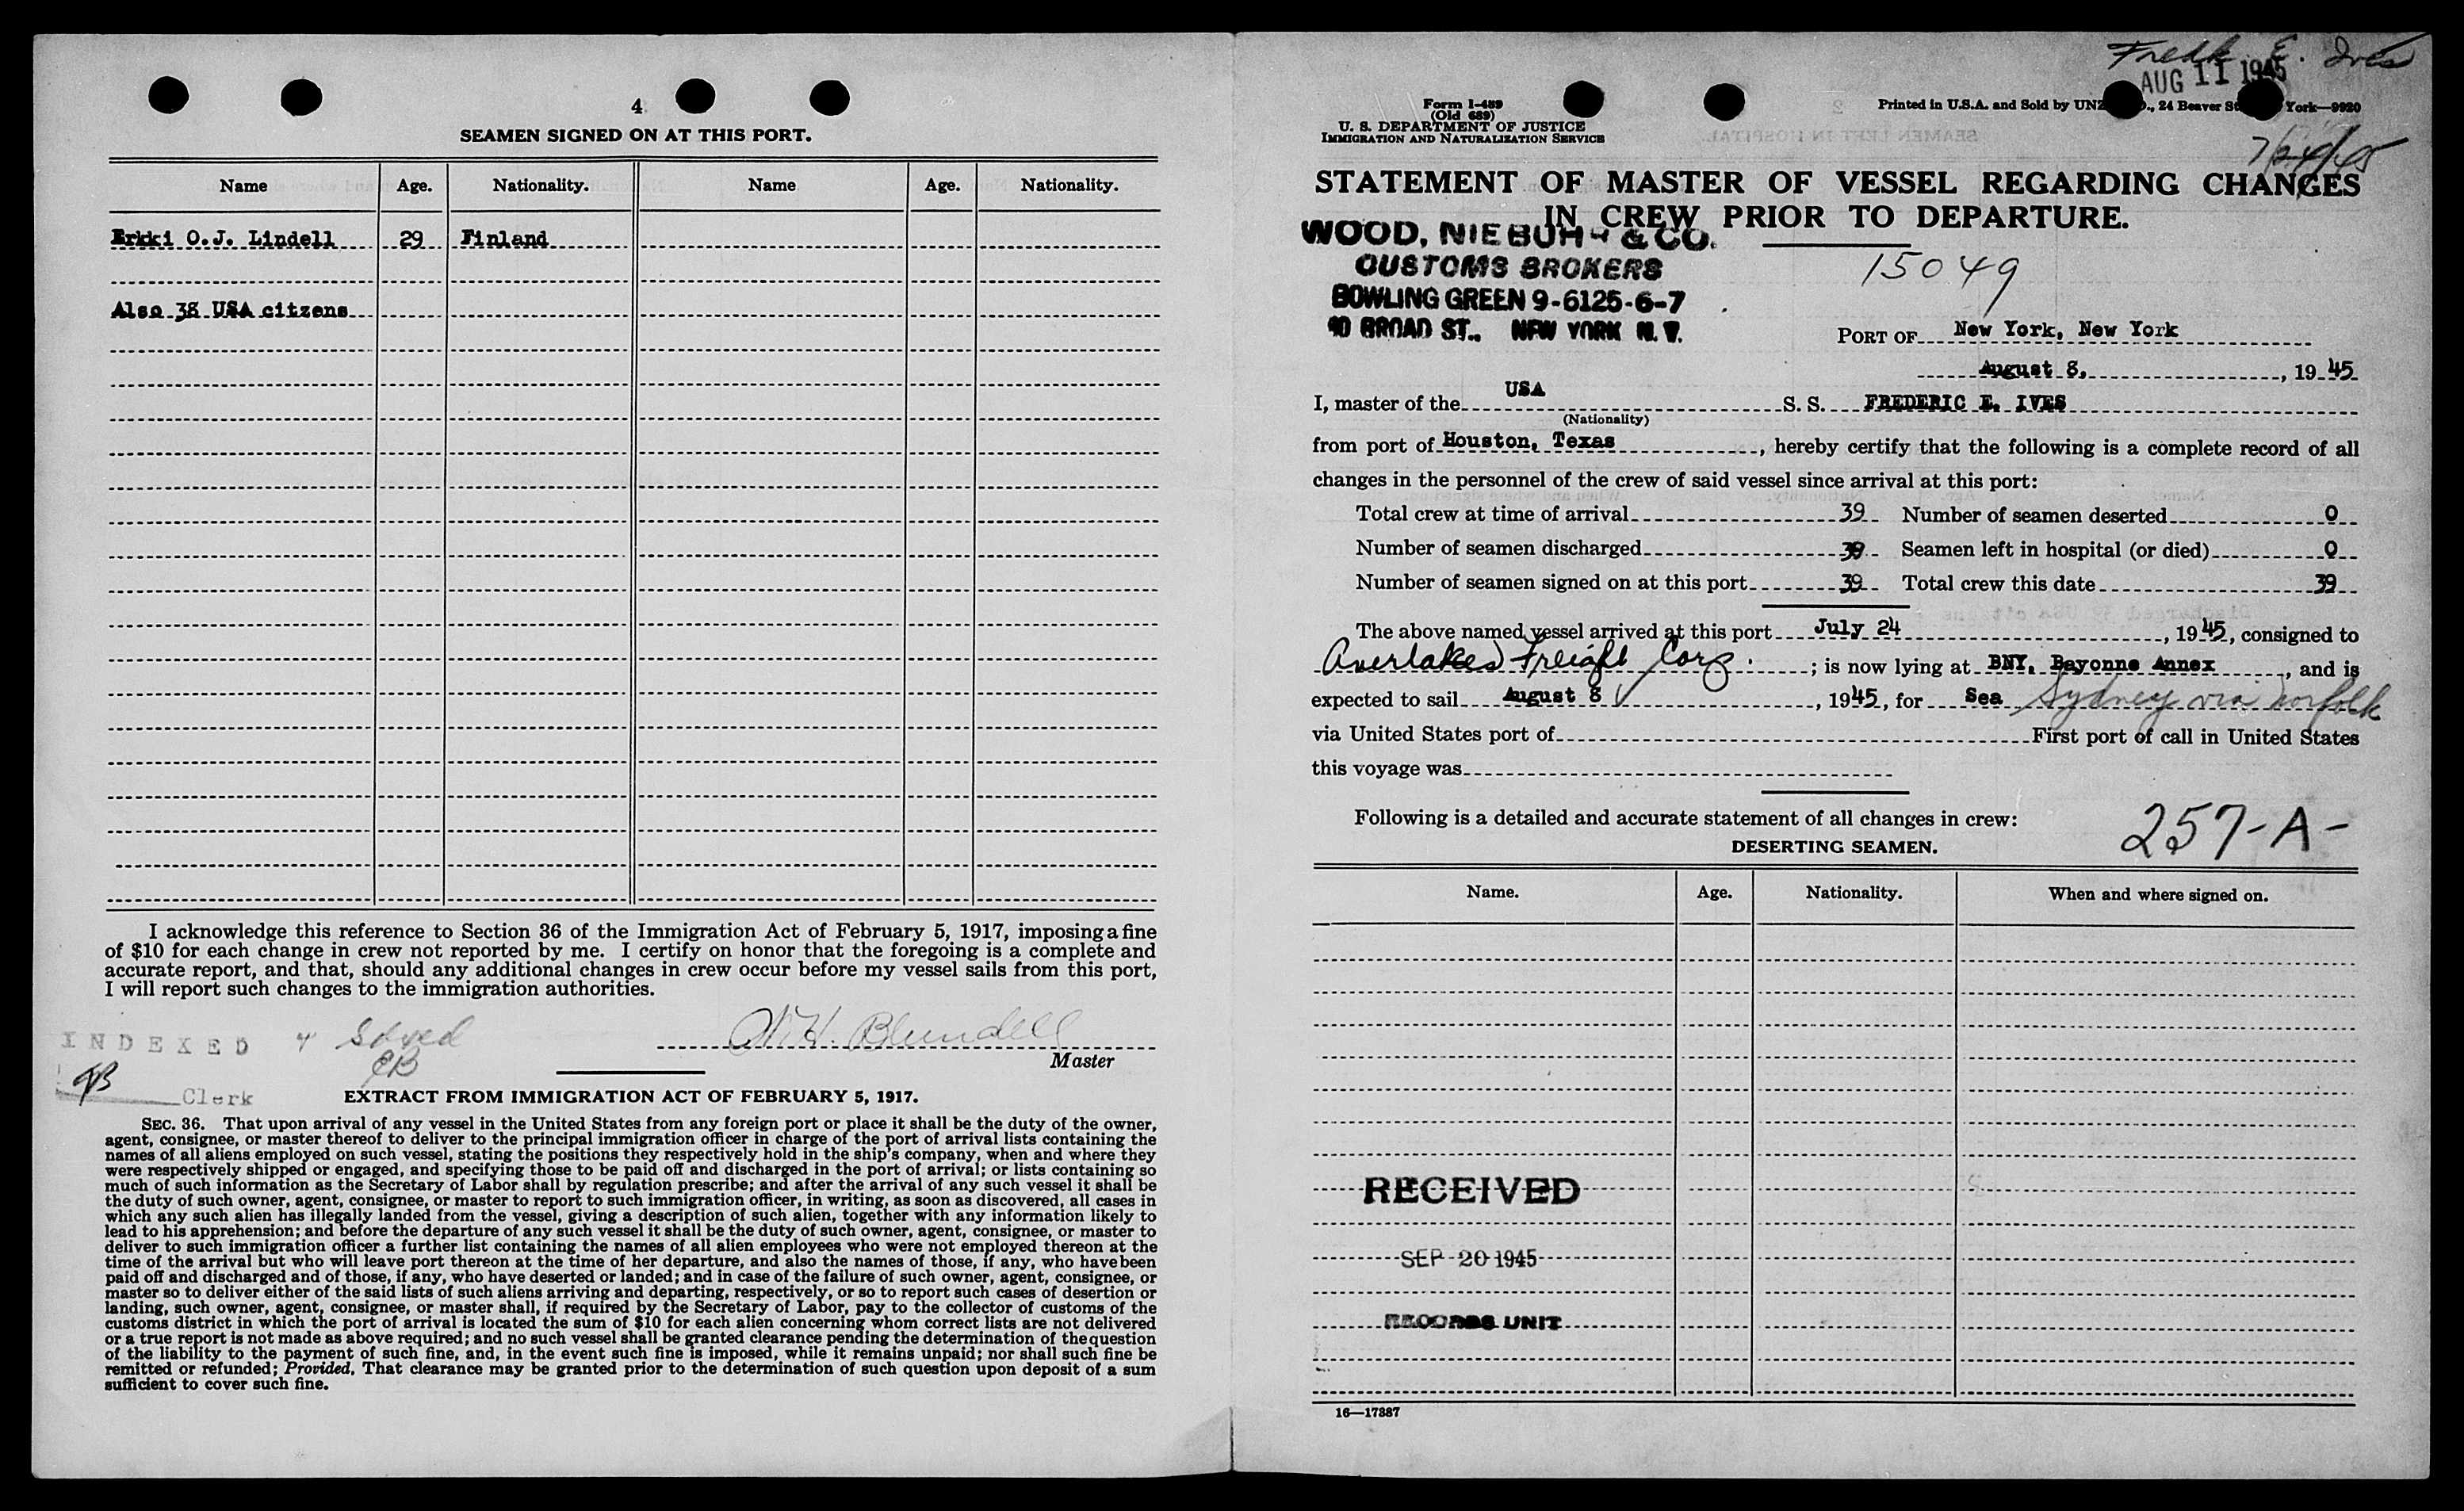 4
SEAMEN SIGNED ON AT THIS PORT.
Name Age. Nationality. Name Age. Nationality.
Erkki O.J. Lindell 29 Finland
Also 38 USA citzens
I acknowledge this reference to Section 36 of the Immigration Act of February 5, 1917, imposing a fine
of $10 for each change in crew not reported by me. I certify on honor that the foregoing is a complete and
accurate report, and that, should any additional changes in crew occur before my vessel sails from this port,
I will report such changes to the immigration authorities.
INDEXED
EB
Clerk
W.H. Blundell
Master
EXTRACT FROM IMMIGRATION ACT OF FEBRUARY 5, 1917.
SEC. 36. That upon arrival of any vessel in the United States from any foreign port or place it shall be the duty of the owner,
agent, consignee, or master thereof to deliver to the principal immigration officer in charge of the port of arrival lists containing the
names of all aliens employed on such vessel, stating the positions they respectively hold in the ship's company, when and where they
were respectively shipped or engaged, and specifying those to be paid off and discharged in the port of arrival; or lists containing so
much of such information as the Secretary of Labor shall by regulation prescribe; and after the arrival of any such vessel it shall be
the duty of such owner, agent, consignee, or master to report to such immigration officer, in writing, as soon as discovered, all cases in
which any such alien has illegally landed from the vessel, giving a description of such alien, together with any information likely to
lead to his apprehension; and before the departure of any such vessel it shall be the duty of such owner, agent, consignee, or master to
deliver to such immigration officer a further list containing the names of all alien employees who were not employed thereon at the
time of the arrival but who will leave port thereon at the time of her departure, and also the names of those, if any, who have been
paid off and discharged and of those, if any, who have deserted or landed; and in case of the failure of such owner, agent, consignee, or
master so to deliver either of the said lists of such aliens arriving and departing, respectively, or so to report such cases of desertion or
landing, such owner, agent, consignee, or master shall, if required by the Secretary of Labor, pay to the collector of customs of the
customs district in which the port of arrival is located the sum of $10 for each alien concerning whom correct lists are not delivered
or a true report is not made as above required; and no such vessel shall be granted clearance pending the determination of the question
of the liability to the payment of such fine, and, in the event such fine is imposed, while it remains unpaid; nor shall such fine be
remitted or refunded; Provided, That clearance may be granted prior to the determination of such question upon deposit of a sum
sufficient to cover such fine.
Fredk E. Ives
AUG 11 1945
Form I-489
(Old 689)
U. S. DEPARTMENT OF JUSTICE
IMMIGRATION AND NATURALIZATION SERVICE
Printed in U.S.A. and Sold by UNZ ., 24 Beaver St York—9920
7/24/45
STATEMENT OF MASTER OF VESSEL REGARDING CHANGES
IN CREW PRIOR TO DEPARTURE.
WOOD, NIEBUHR & CO.
CUSTOMS BROKERS
BOWLING GREEN 9-6125-6-7
BROAD ST., NEW YORK N.Y.
15049
PORT OF New York, New York
August 8, , 19 45
I, master of the USA S. S. FREDERIC E. IVES
(Nationality)
from port of Houston, Texas , hereby certify that the following is a complete record of all
changes in the personnel of the crew of said vessel since arrival at this port:
Total crew at time of arrival 39 Number of seamen deserted 0
Number of seamen discharged 39 Seamen left in hospital (or died) 0
Number of seamen signed on at this port 39 Total crew this date 39
The above named vessel arrived at this port July 24 , 1945, consigned to
Overlakes Freight Corp. ; is now lying at BNY, Bayonne Annex , and is
expected to sail August 8 , 1945, for Sea Sydney via Norfolk
via United States port of First port of call in United States
this voyage was
Following is a detailed and accurate statement of all changes in crew:
257-A-
DESERTING SEAMEN.
Name. Age. Nationality. When and where signed on.
RECEIVED
SEP 20 1945
RECORDS UNIT
16—17387